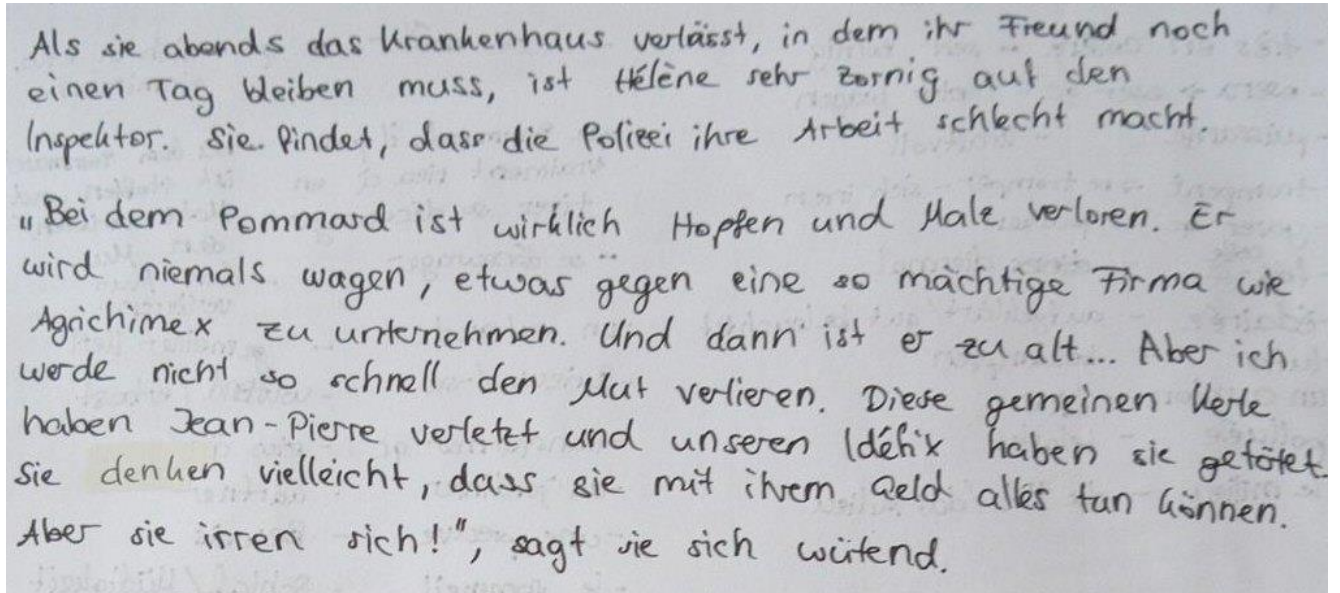 Als sie abends das Krankenhaus verlässt, in dem ihr Freund noch
einen Tag bleiben muss, ist Hélène sehr zornig auf den
Inspektor. Sie findet, dass die Polizei ihre Arbeit schlecht macht.
"Bei dem Pommard ist wirklich Hopfen und Malz verloren. Er
wird niemals wagen, etwas gegen eine so mächtige Firma wie
Agrichimex zu unternehmen. Und dann ist er zu alt... Aber ich
werde nicht so schnell den Mut verlieren. Diese gemeinen Kerle
haben Jean-Pierre verletzt und unseren Idéfix haben sie getötet.
Sie denken vielleicht, dass sie mit ihrem Geld alles tun können.
Aber sie irren sich!", sagt sie sich wütend.